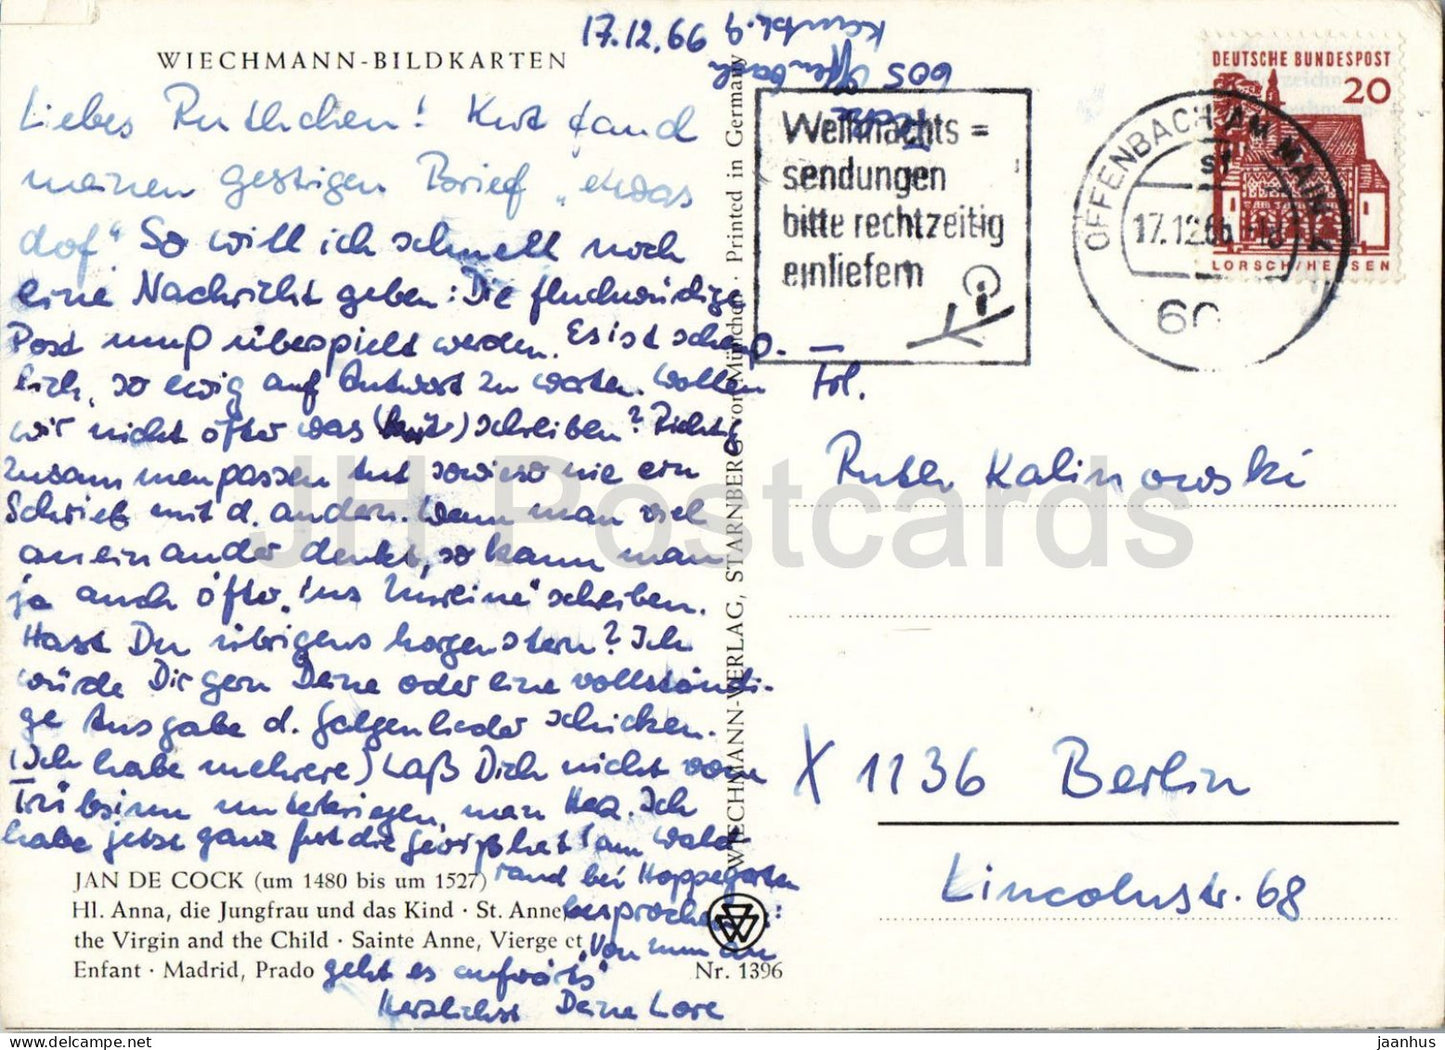 17.12.66
605 Offenbach
WIECHMANN-BILDKARTEN
Liebes Ruthchen! Kurt fand
meinen gestrigen Brief „etwas
dof“ So will ich schnell noch
eine Nachricht geben: Die fluchwürdige
Post muß überspielt werden. Es ist schimpf-
lich, so ewig auf Antwort zu warten. Wollen
wir nicht öfter was (kurz) schreiben? Richtig
zusammenpassen tut sowieso nie ein
Schrieb mit d. andern. Wenn man viel
aneinander denkt, so kann man
ja auch öfter „ins Unreine“ schreiben.
Hast Du übrigens Morgenstern? Ich
würde Dir gern Deine oder eine vollständi-
ge Ausgabe d. Galgenlieder schicken.
(Ich habe mehrere) Laß Dich nicht vom
Trübsinn unterkriegen, mein Herz. Ich
habe jetzt ganz fest die Gewißheit (am Wald-
rand bei Hoppegarten
besprochen):
„Von nun an
geht es aufwärts“
Herzlichst Deine Lore
JAN DE COCK (um 1480 bis um 1527)
Hl. Anna, die Jungfrau und das Kind · St. Anne,
the Virgin and the Child · Sainte Anne, Vierge et
Enfant · Madrid, Prado
Nr. 1396
WIECHMANN-VERLAG, STARNBERG vor München · Printed in Germany
Weihnachts=
sendungen
bitte rechtzeitig
einliefern
OFFENBACH AM MAIN
17.12.66
DEUTSCHE BUNDESPOST
20
LORSCH/HESSEN
Frl.
Ruth Kalinowski
X 1136 Berlin
Lincolnstr. 68
JH Postcards
jaanhus @ hipmarket.com